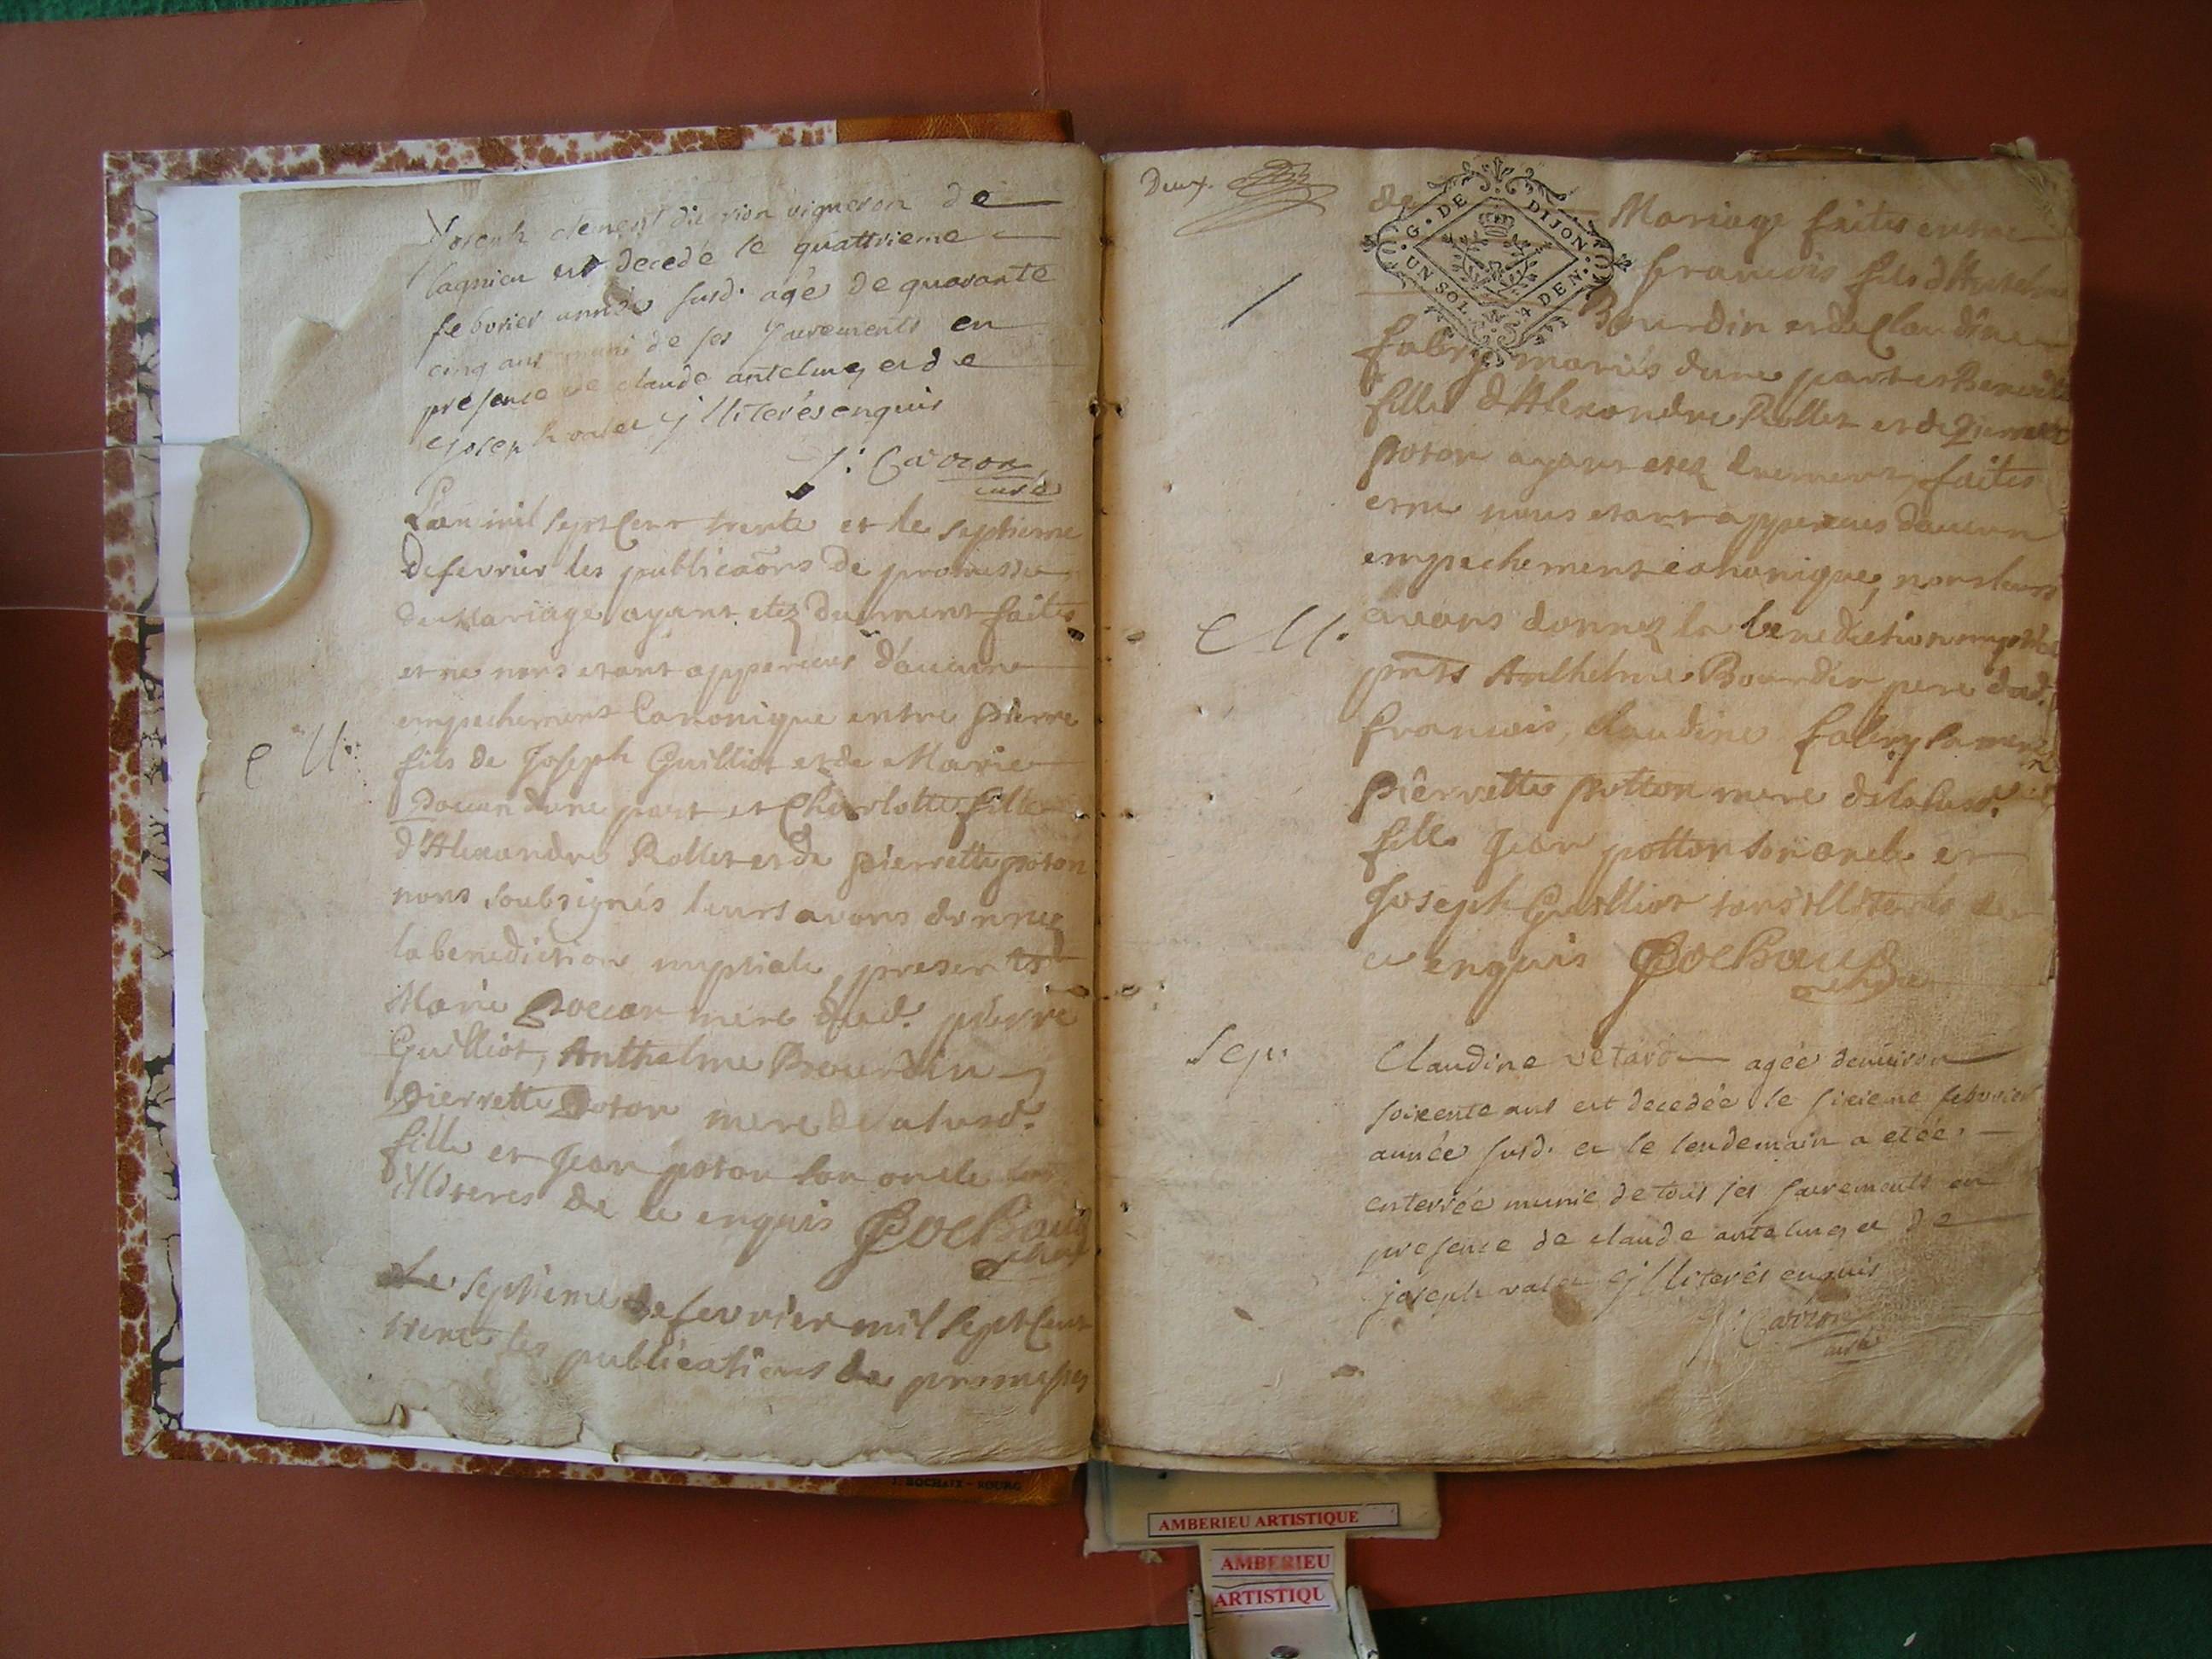 Joseph clement dit rion vigneron de
lagnieu est decedé le quattrieme
febvrier année susd. agé de quarante
cinq ans muni de ses sacrements en
presence de claude antelme, et de
joseph valet illiterés enquis
J: Carron
curé
L'an mil sept Cent trente et le septieme
de fevrier les publicaõns de promesse
M.
de Mariage ayant etez duement faites
et ne nous etant apperceus d'aucun
empechement Canonique entre pierre
fils de Joseph Guilliot et de Marie
d'une part et Charlotte fille
d'Alexandre Rollet et de pierrette poton
nous soubsignés leurs avons donnez
la benediction nuptiale, presents
Marie mere dud. pierre
Guilliot, Anthelme Bourdin
pierrette Poton mere de la susd.
fille et Jean poton son oncle tous
illiteres de ce enquis
Le septieme de fevrier mil sept Cent
trente les publications de promesses
Deux.
G. DE DIJON
UN SOL 4 DEN.
de Mariage faites entre
francois fils d'Anthelme
Bourdin et de Claudine
fabry mariés d'une part et Benoite
fille d'Alexandre Rollet et de Pierrette
Poton ayant etez duement faites
et ne nous etant apperceus d'aucun
empechement canonique, nous leurs
M.
avons donnez la benediction nuptiale
pnts Anthelme Bourdin pere dud.
francois, claudine fabry sa mere
pierrette potton mere de la susd.
fille Jean potton son oncle et
Joseph Guilliot tous illiterés de
ce enquis
Sep.
Claudine vetard agée denviron
soixente ans est decedée le sixieme febvrier
année susd. et le lendemain a etée
enterrée munie de tous ses sacrements en
presence de claude antelme, et de
joseph valet illiterés enquis
J: Carron
curé
AMBERIEU ARTISTIQUE
AMBERIEU
ARTISTIQU